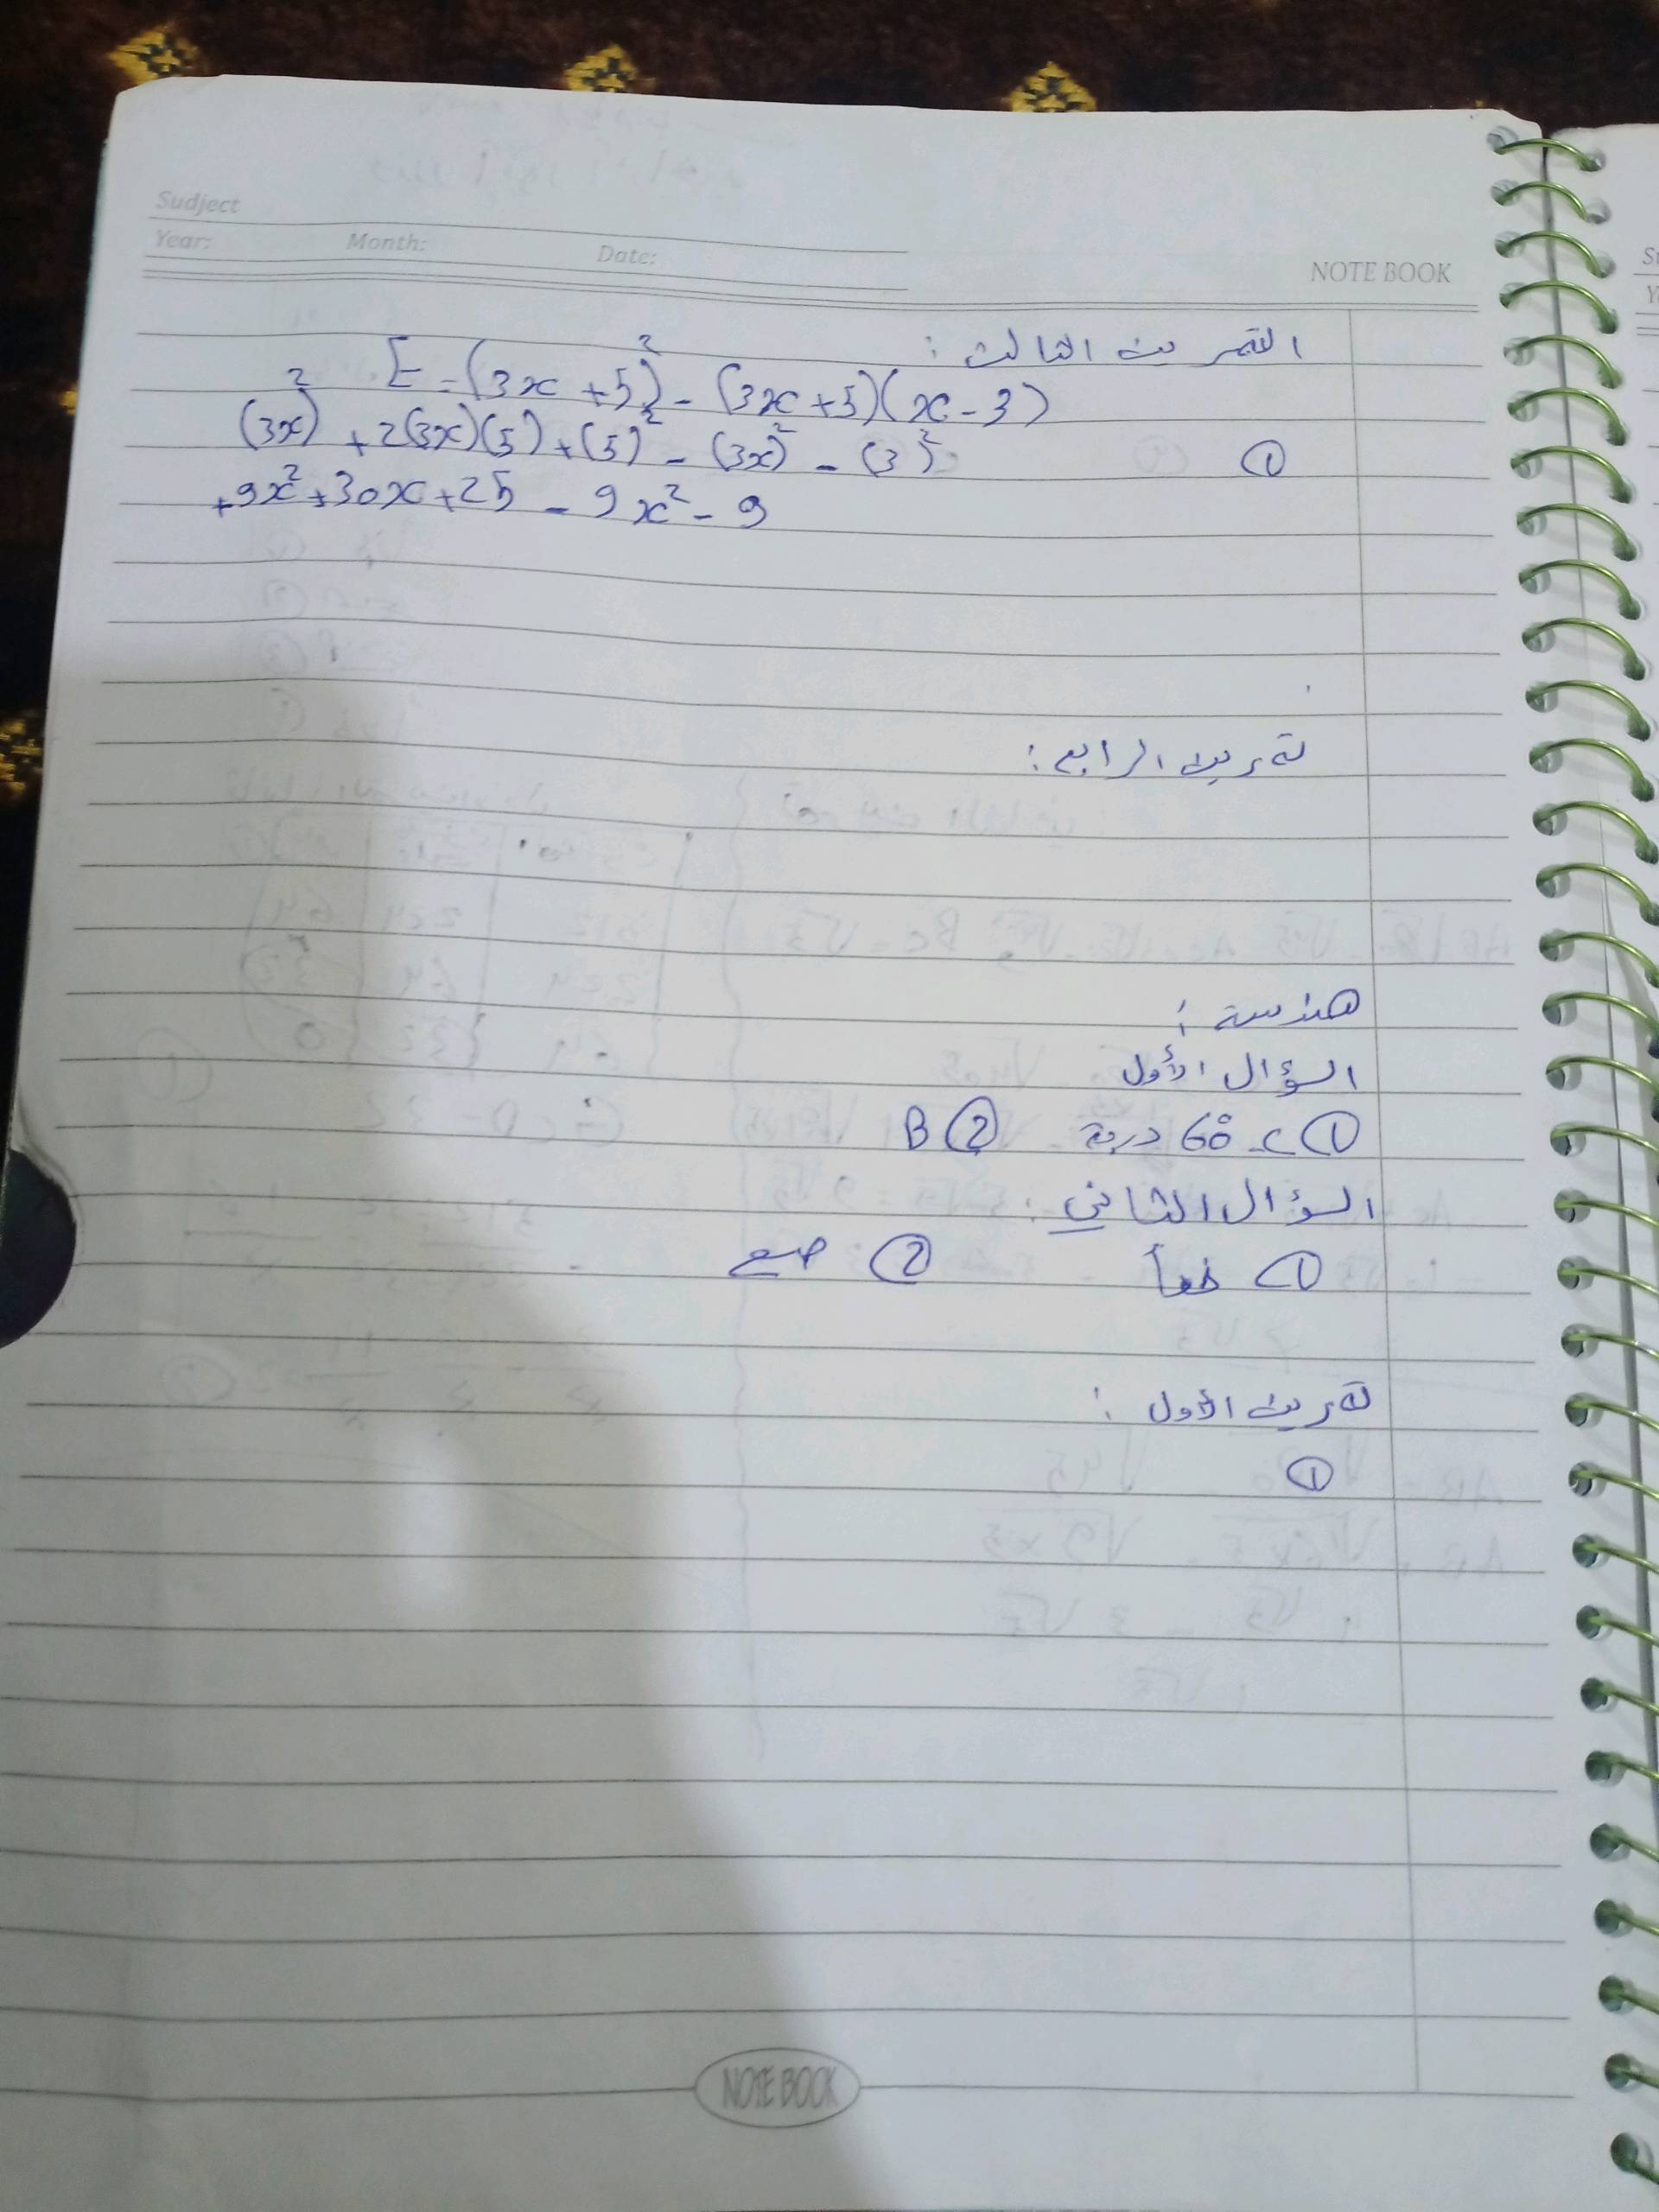 Sudject
Year: Month: Date:
NOTE BOOK
التمرين الثالث :
E = (3x + 5)² - (3x + 5)(x - 3)
(3x)² + 2(3x)(5) + (5)² - (3x)² - (3)² ①
+9x² + 30x + 25 - 9x² - 9
تمرين الرابع :
هندسة :
السؤال الأول
① C - 60° درجة ② B
السؤال الثاني :
① خطأ ② صح
تمرين الأول :
①
NOTE BOOK